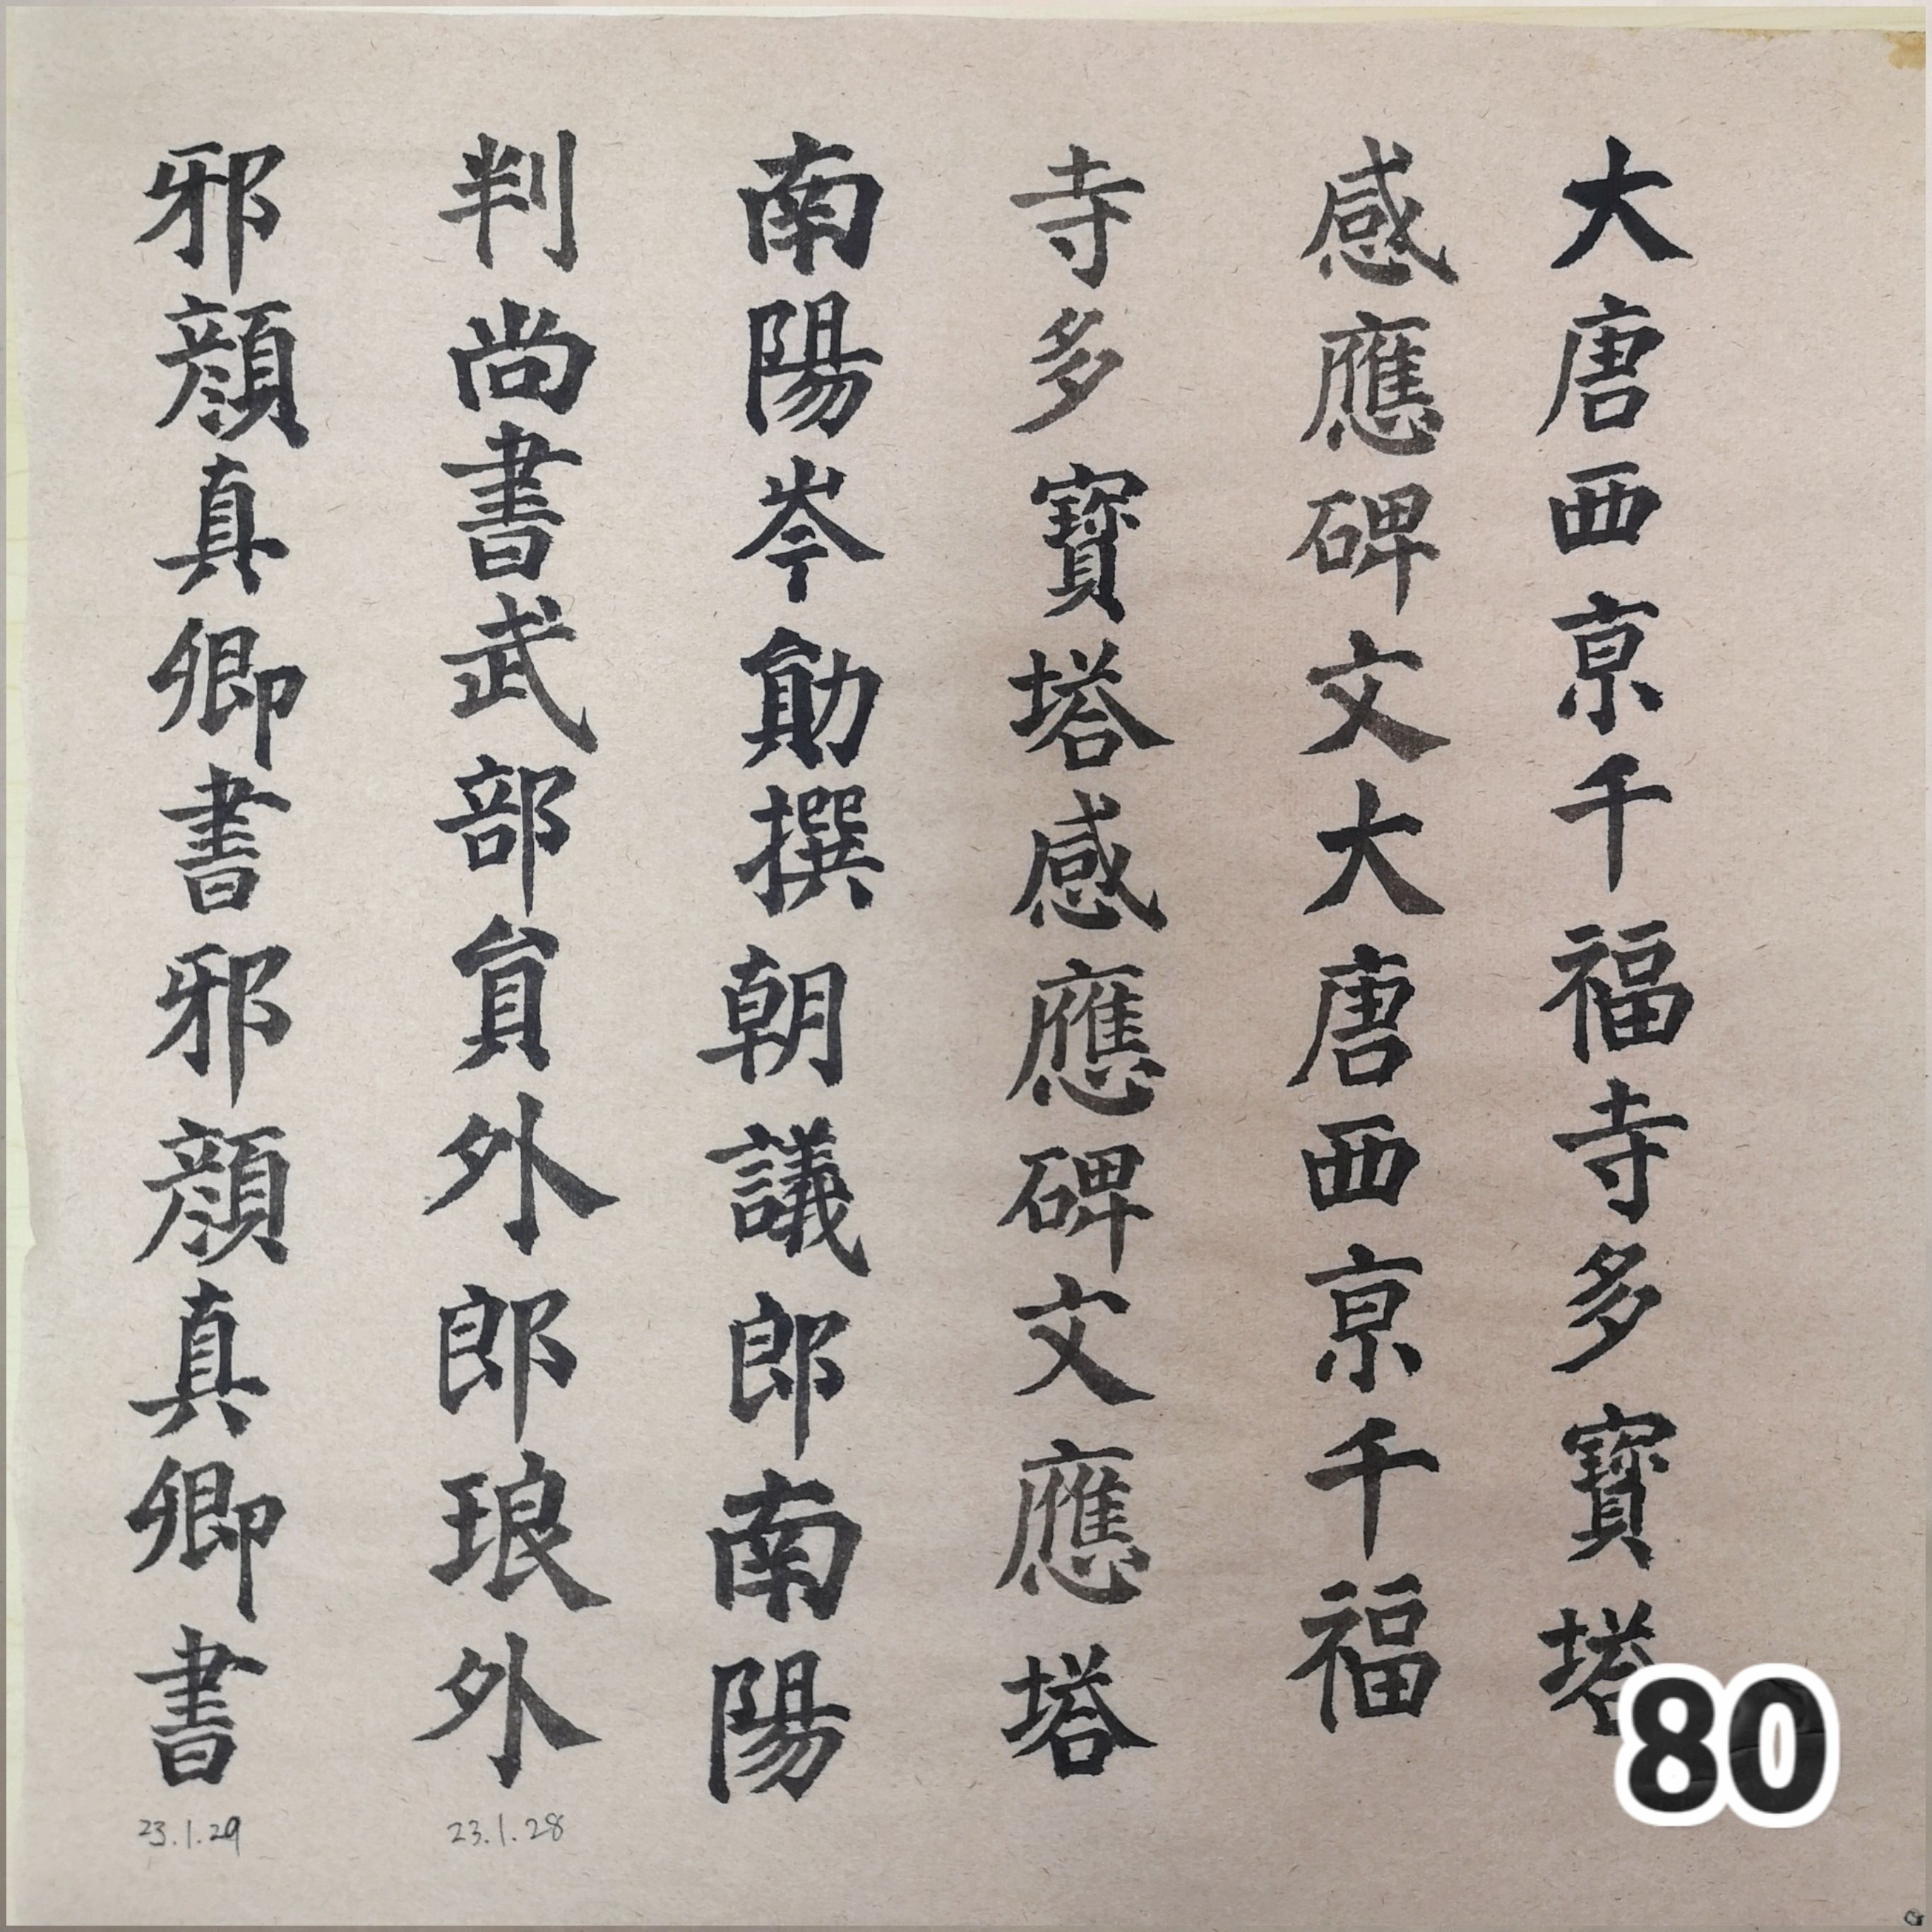 大唐西京千福寺多寶塔
感應碑文大唐西京千福
寺多寶塔感應碑文應塔
南陽岑勛撰朝議郎南陽
判尚書武部員外郎琅外
邪顏真卿書邪顏真卿書
23.1.28
23.1.29
80